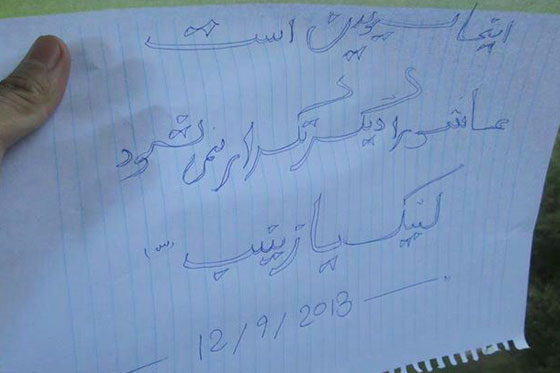 اینجا سوریه است
عاشورا دیگر تکرار نمی شود
لبیک یا زینب (س)
12/9/2013